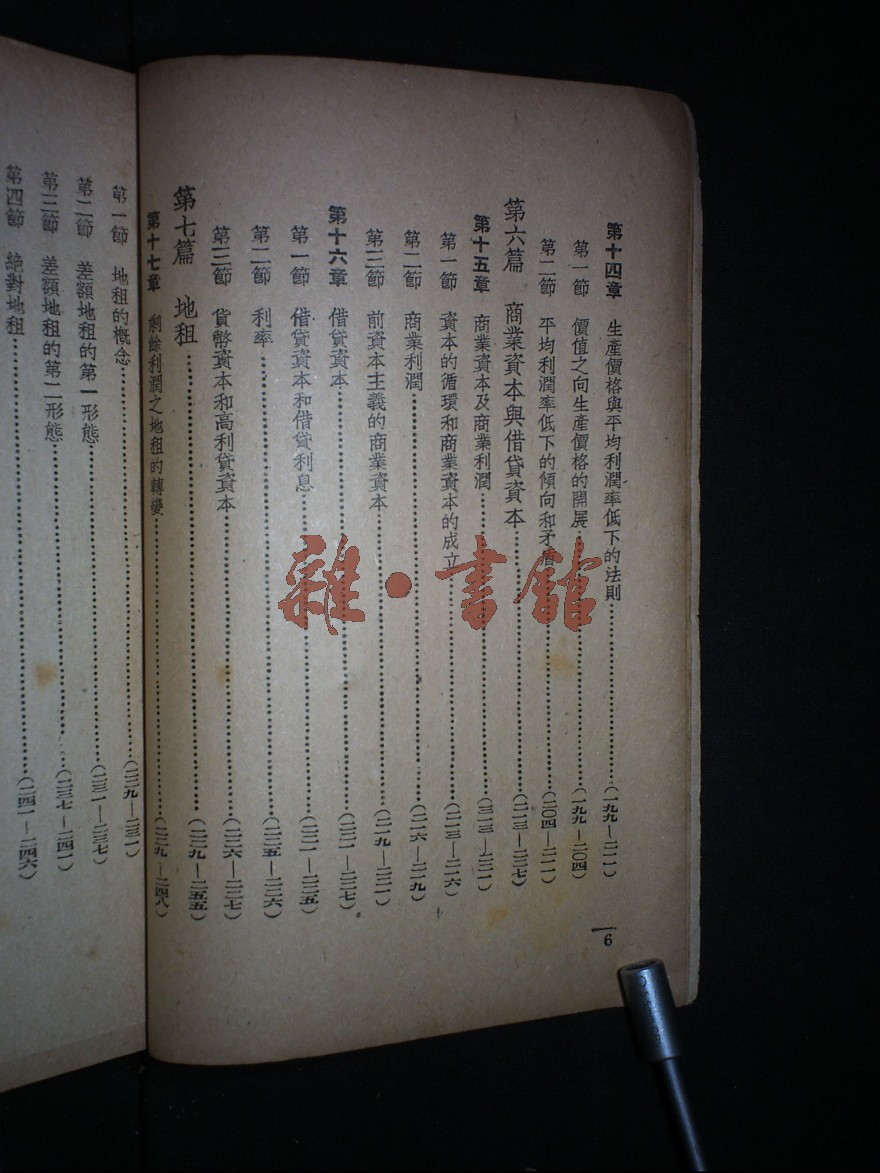 第十四章 生產價格與平均利潤率低下的法則………(一九九—二一一)
第一節 價值之向生產價格的開展………(一九九—二〇四)
第二節 平均利潤率低下的傾向和矛盾………(二〇四—二一一)
第六篇 商業資本與借貸資本………(二一三—二二七)
第十五章 商業資本及商業利潤………(二一三—二二一)
第一節 資本的循環和商業資本的成立………(二一三—二一六)
第二節 商業利潤………(二一六—二一九)
第三節 前資本主義的商業資本………(二一九—二二一)
第十六章 借貸資本………(二二一—二二七)
第一節 借貸資本和借貸利息………(二二一—二二五)
第二節 利率………(二二五—二二六)
第三節 貨幣資本和高利貸資本………(二二六—二二七)
第七篇 地租………(二二九—二五五)
第十七章 剩餘利潤之地租的轉變………(二二九—二四八)
6
第一節 地租的概念………(二二九—二三一)
第二節 差額地租的第一形態………(二三一—二三七)
第三節 差額地租的第二形態………(二三七—二四一)
第四節 絕對地租………(二四一—二四六)
雜·書館